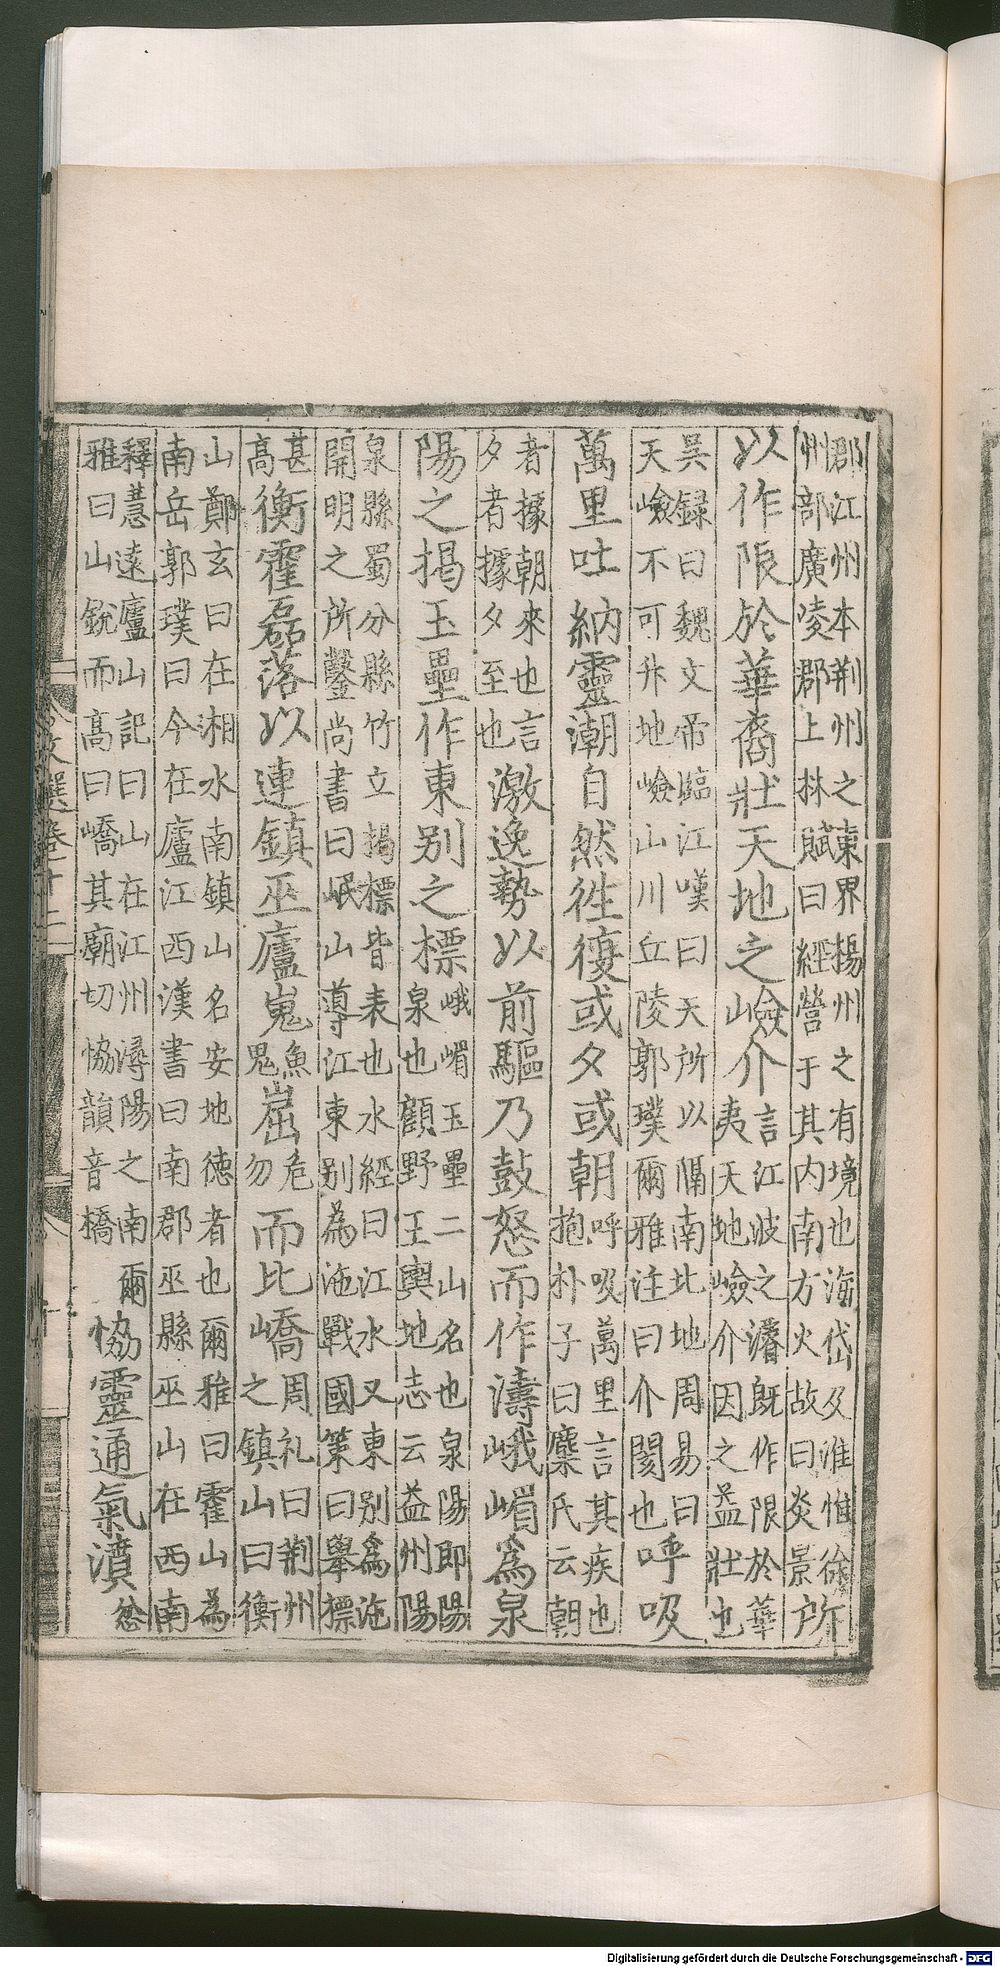 郡江州本荆州之東界揚州之有境也海岱及淮惟徐
州部廣陵郡上林賦曰經營于其内南方火故曰炎景所
以作限於華裔壯天地之嶮介言江波之濬既作限於華
夷天地嶮介因之益壯也
吳録曰魏文帝臨江嘆曰天所以隔南北地周易曰
天嶮不可升地嶮山川丘陵郭璞爾雅注曰介閡也呼吸
萬里吐納靈潮自然徃復或夕或朝呼吸萬里言其疾也
抱朴子曰麋氏云朝
者據朝來也言
夕者據夕至也激逸勢以前驅乃鼓怒而作濤峨嵋為泉
陽之揭玉壘作東别之標峨嵋玉壘二山名也泉陽即陽
泉也顧野王輿地志云益州陽
泉縣蜀分縣竹立揚標皆表也水經曰江水又東别為沲
開明之所鑿尚書曰岷山導江東别為沲戰國策曰舉標
甚
高衡霍磊落以連鎮巫廬嵬魚鬼崫危勿而比嶠周礼曰荆州
之鎮山曰衡
山鄭玄曰在湘水南鎮山名安地德者也爾雅曰霍山為
南岳郭璞曰今在廬江西漢書曰南郡巫縣巫山在西南
釋慧遠廬山記曰山在江州潯陽之南爾
雅曰山銳而高曰嶠其廟切協韻音橋協靈通氣濆忿
文選卷十二
十
Digitalisierung gefördert durch die Deutsche Forschungsgemeinschaft - DFG